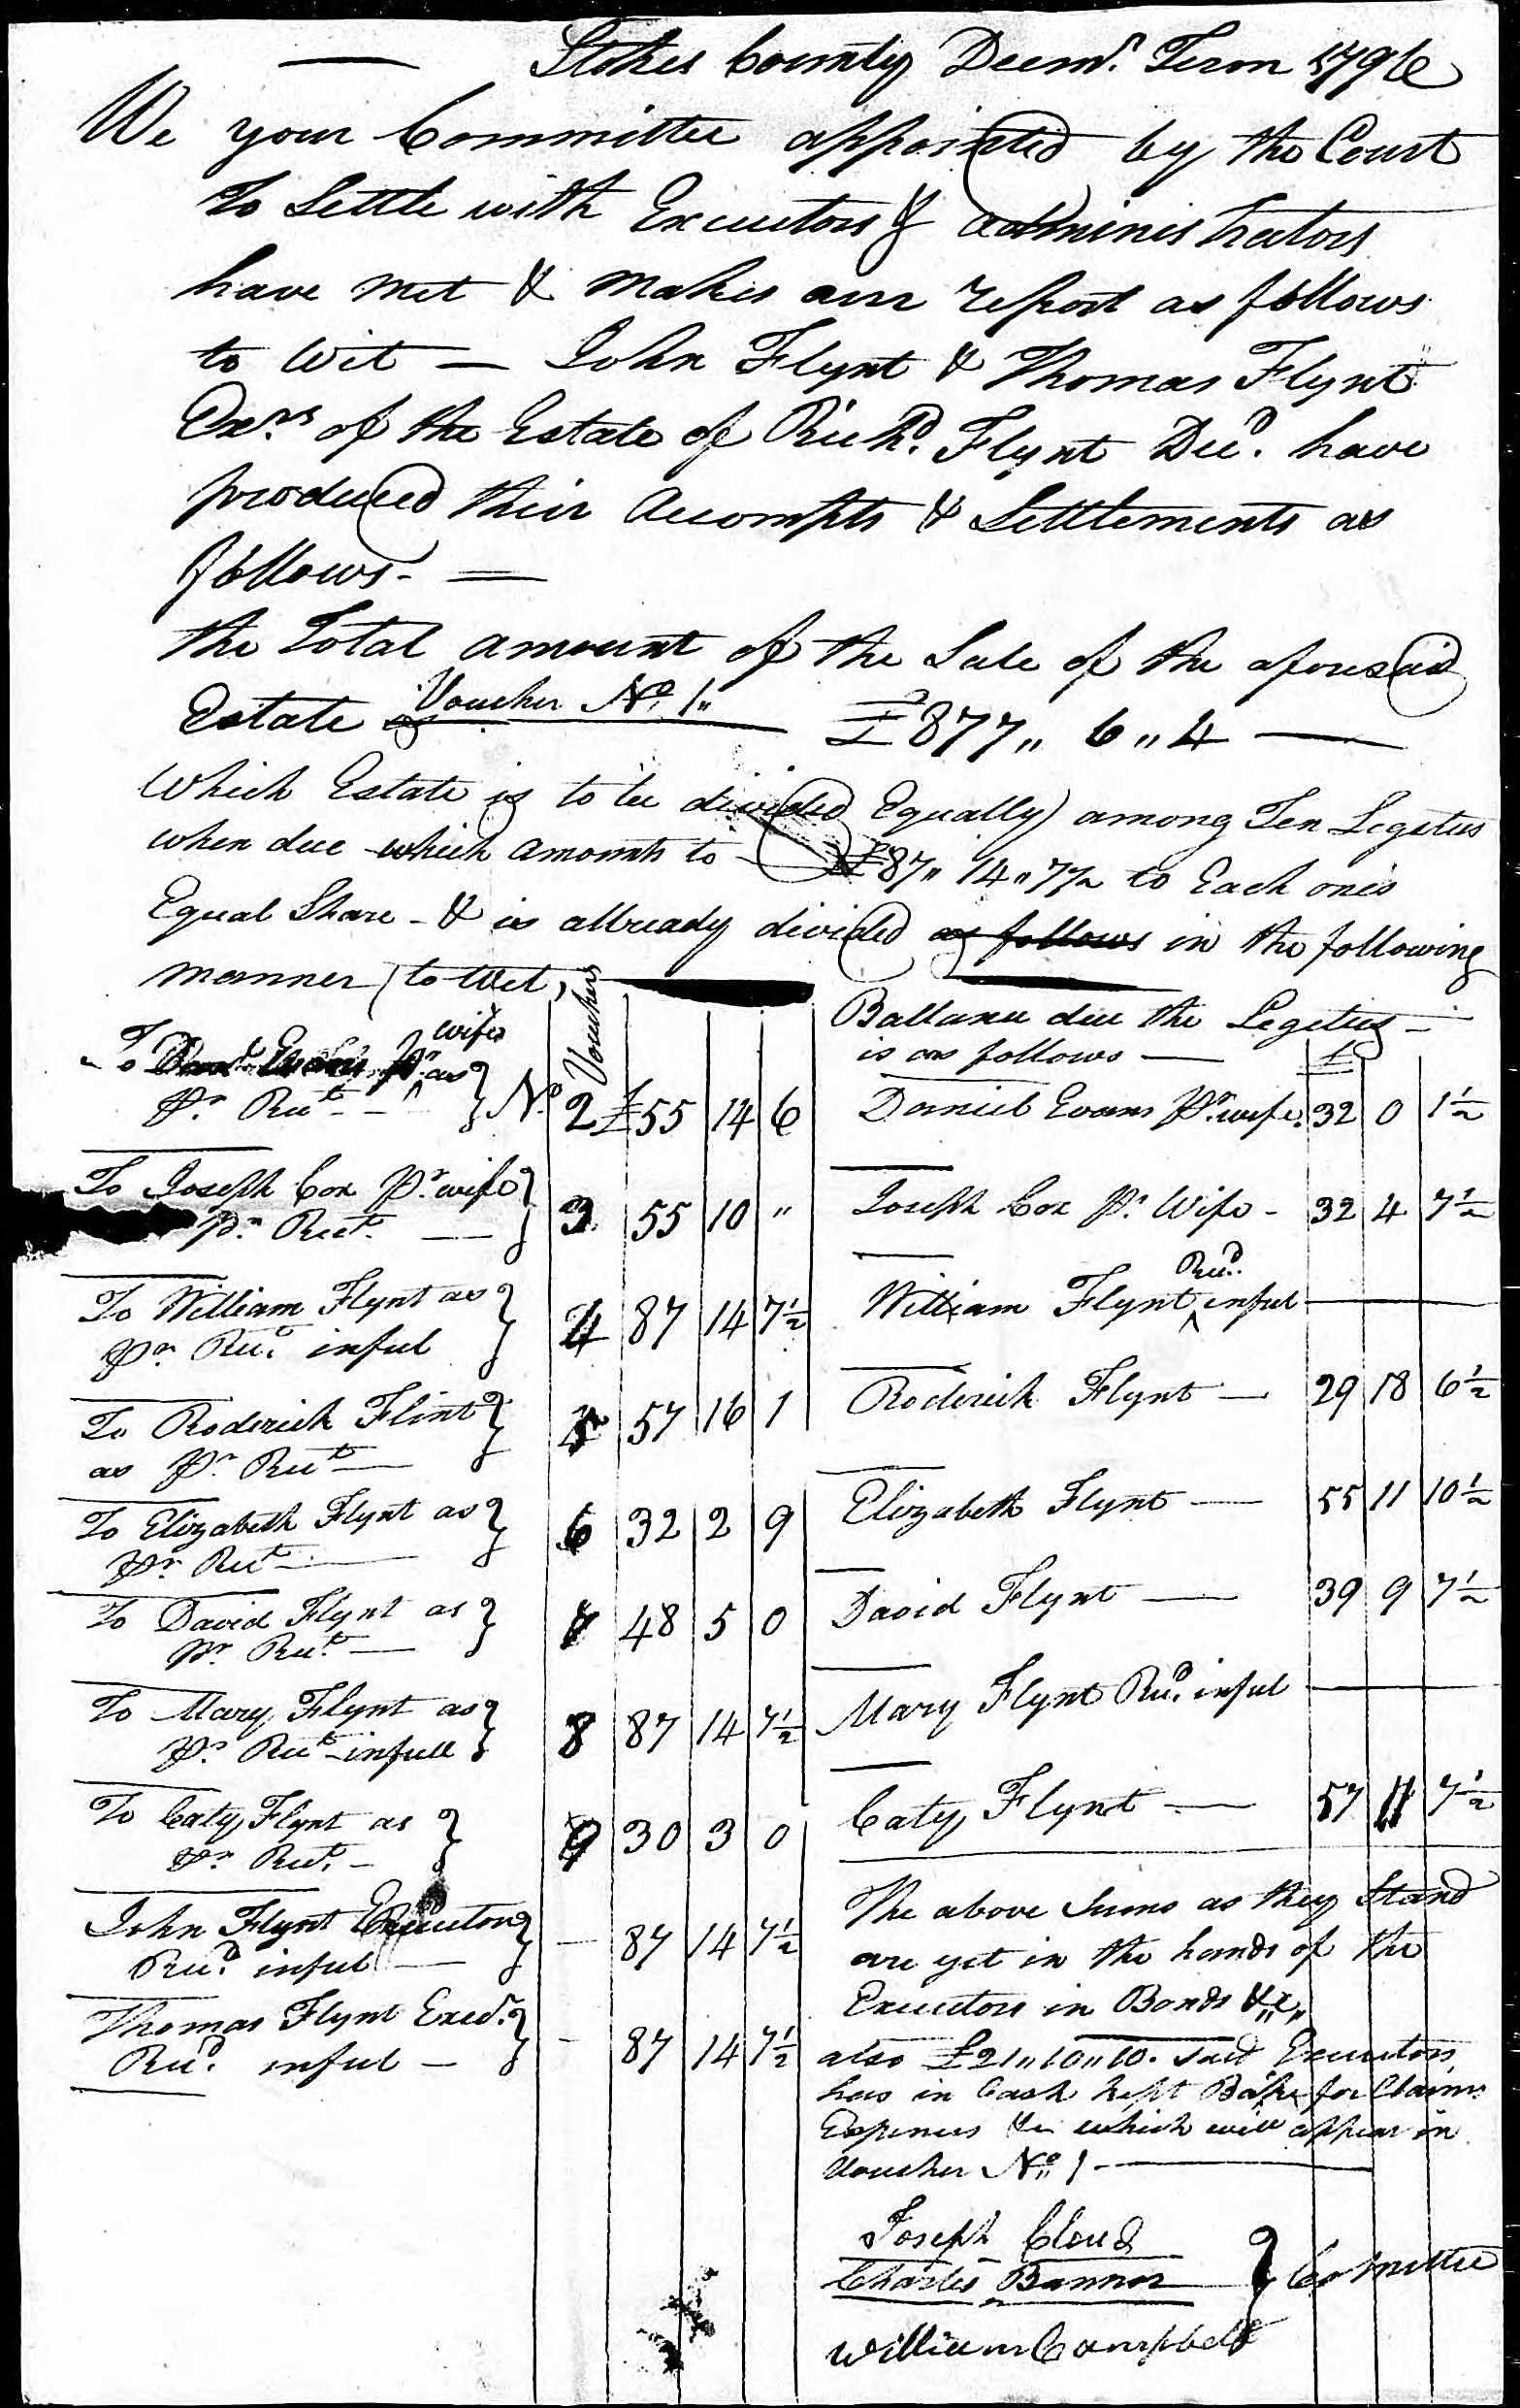 Stokes County Decmr. Term 1796
We your Committee appointed by the Court
To Settle with Executors & administrators
have met & makes our report as follows
to Wit — John Flynt & Thomas Flynt
Exrs of the Estate of Richd. Flynt Decd. have
produced their Accompts & Settlements as
follows. —
the Total amount of the Sale of the aforesaid
Estate as Voucher No. 1 „ £877 „ 6 „ 4 —
Which Estate is to be divided Equally among Ten Legetees
when due which amounts to £87 „ 14 „ 7½ to Each ones
Equal Share - & is allready divided as follows in the following
manner (to Wit,
Vouchers
To Danl. Evans pr. wife as
pr. Rect. — No. 2 £55 14 6
To Joseph Cox pr. wife
pr. Rect. — 3 55 10 „
To William Flynt as
pr. Recd. inful 4 87 14 7½
To Roderick Flint
as pr. Rect — 5 57 16 1
To Elizabeth Flynt as
pr. Rect — 6 32 2 9
To David Flynt as
pr. Rect. — 7 48 5 0
To Mary Flynt as
pr. Rect infull 8 87 14 7½
To Caty Flynt as
pr. Rect. — 9 30 3 0
John Flynt Executor
Recd. inful — — 87 14 7½
Thomas Flynt Exer.
Recd. inful — - 87 14 7½
Ballance due the Legetees —
is as follows — £
Daniel Evans pr. wife. 32 0 1½
Joseph Cox pr. Wife - 32 4 7½
William Flynt Recd. inful —
Roderick Flynt — 29 18 6½
Elizabeth Flynt — 55 11 10½
David Flynt — 39 9 7½
Mary Flynt Recd. inful —
Caty Flynt — 57 11 7½
The above Sums as they Stand
are yet in the hands of the
Executors in Bonds &c „
also £21 „ 10 „ 10. Said Executors
has in Cash kept Back for Claims
Expences &c which will appear in
Voucher No. 1 —
Joseph Cloud
Charles Banner
Committee
William Campbell